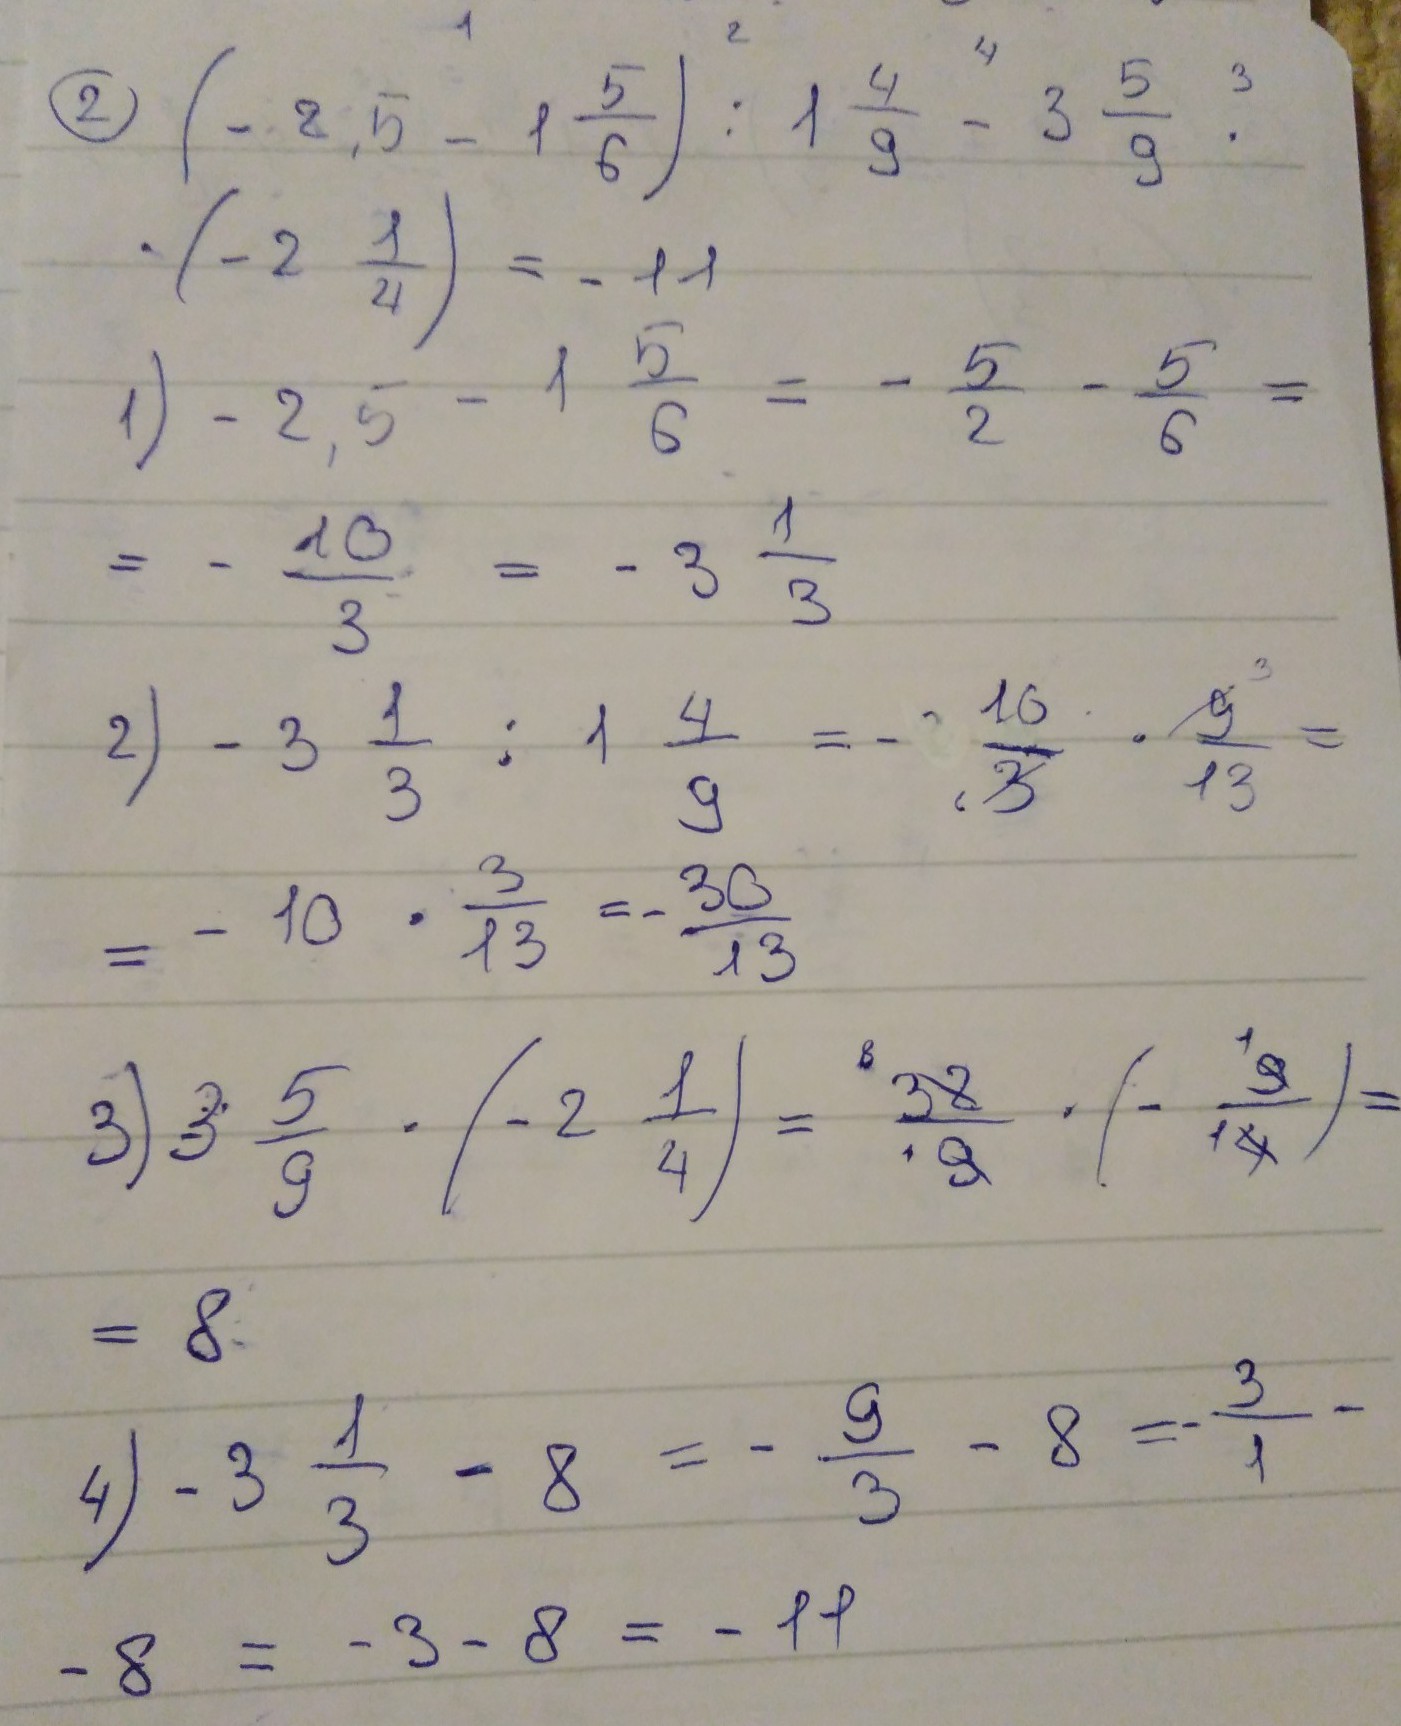 1 2 4 3
② (- 2,5 - 1 5/6) : 1 4/9 - 3 5/9 ·
· (- 2 1/4) = - 11
1) - 2,5 - 1 5/6 = - 5/2 - 5/6 =
= - 10/3 = - 3 1/3
2) - 3 1/3 : 1 4/9 = - 10/3 · 9/13 = 3
= - 10 · 3/13 = - 30/13
3) 3 5/9 · (- 2 1/4) = 8 32/9 1 · (- 1 9/4 1) =
= 8
4) - 3 1/3 - 8 = - 9/3 - 8 = - 3/1 -
- 8 = - 3 - 8 = - 11